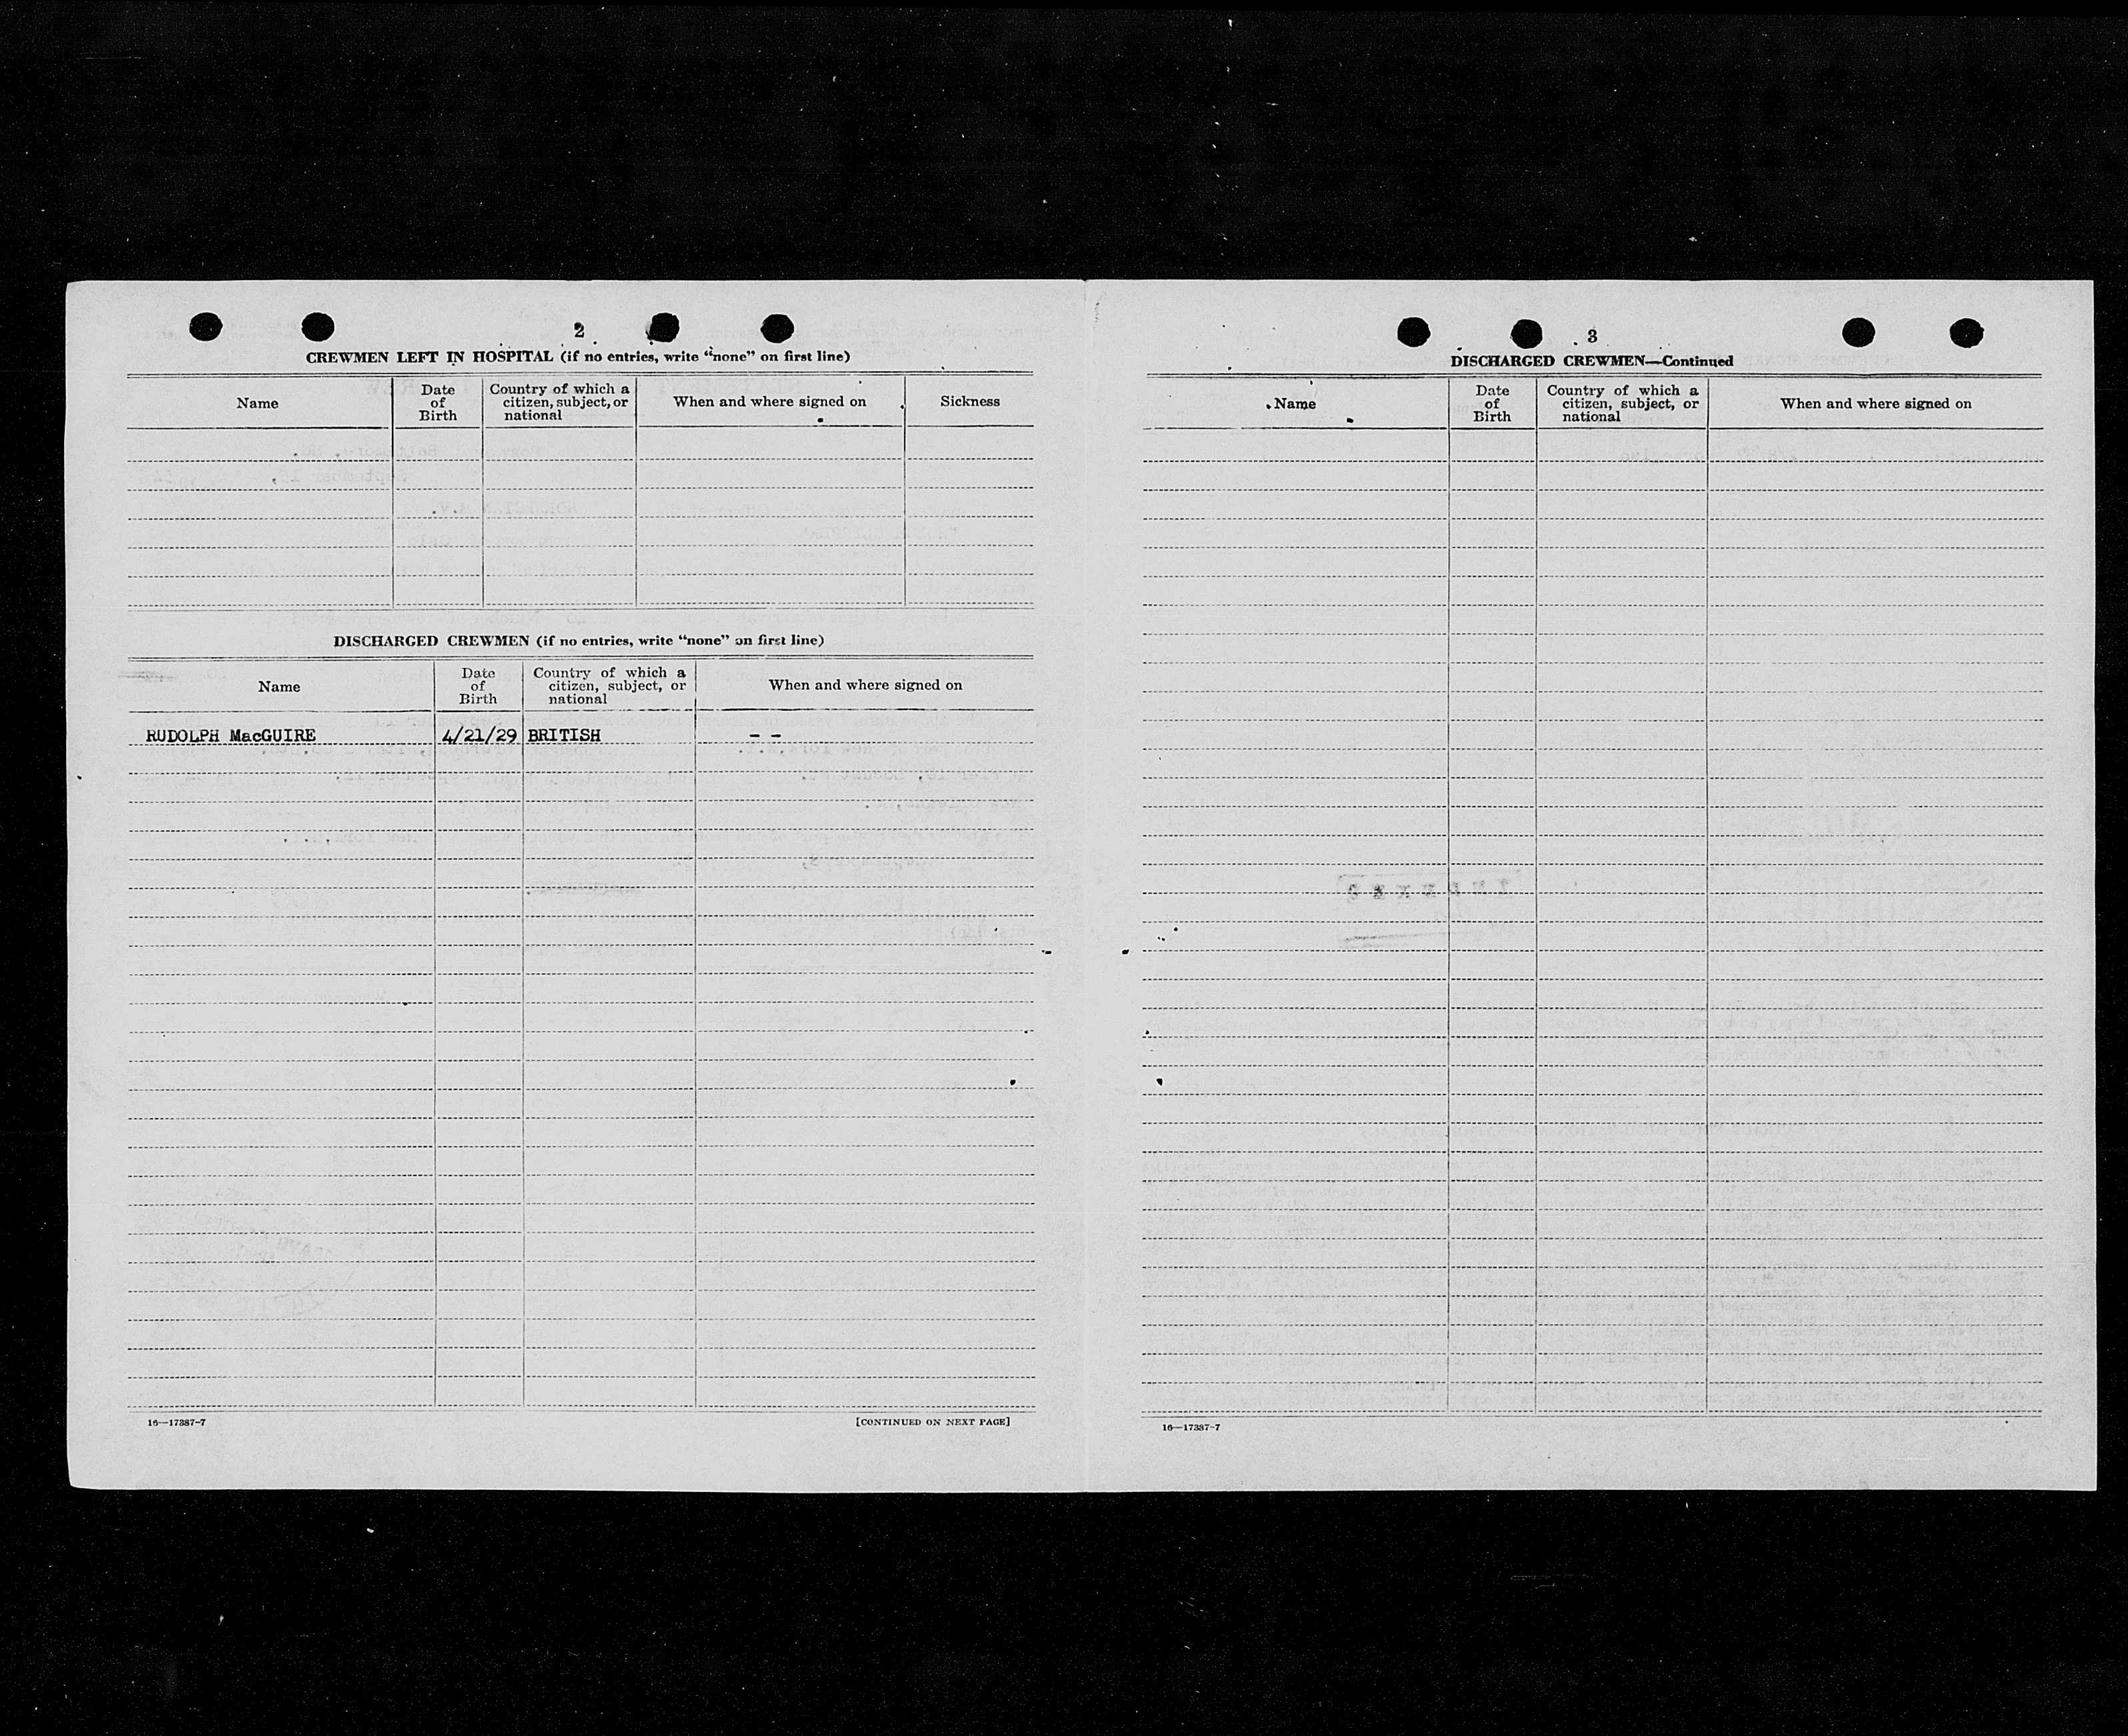 2
CREWMEN LEFT IN HOSPITAL (if no entries, write “none” on first line)
Name
Date of Birth
Country of which a citizen, subject, or national
When and where signed on
Sickness
DISCHARGED CREWMEN (if no entries, write “none” on first line)
Name
Date of Birth
Country of which a citizen, subject, or national
When and where signed on
RUDOLPH MacGUIRE 4/21/29 BRITISH - -
16—17387-7 [CONTINUED ON NEXT PAGE]
3
DISCHARGED CREWMEN—Continued
Name
Date of Birth
Country of which a citizen, subject, or national
When and where signed on
INDEXED
16—17387-7